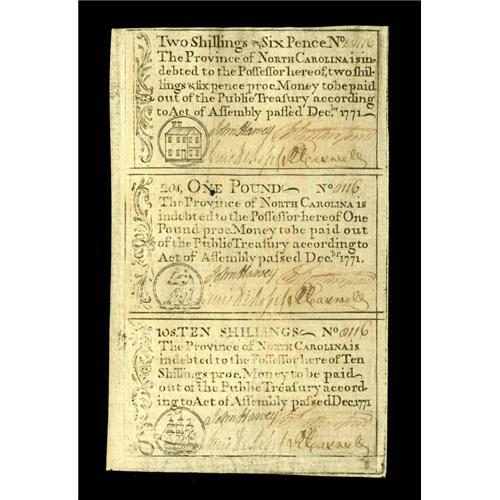 Two Shillings & Six Pence. No. 0116
The Province of NORTH CAROLINA is in-
debted to the Possessor here of, two shil-
lings & six pence proc. Money to be paid
out of the Public Treasury according
to Act of Assembly passed Dec.br 1771~
John Harvey
Lewis
R Caswell
20s, ONE POUND~ No 0116
The Province of NORTH CAROLINA is
indebted to the Possessor here of One
Pound proc. Money to be paid out
of the Public Treasury according to
Act of Assembly passed Decbr. 1771.
John Harvey
Lewis
R Caswell
10s. TEN SHILLINGS~ No 0116
The Province of NORTH CAROLINA is
indebted to the Possessor here of Ten
Shillings proc. Money to be paid
out of the Public Treasury accord-
ing to Act of Assembly passed Dec. 1771
John Harvey
Lewis
R Caswell